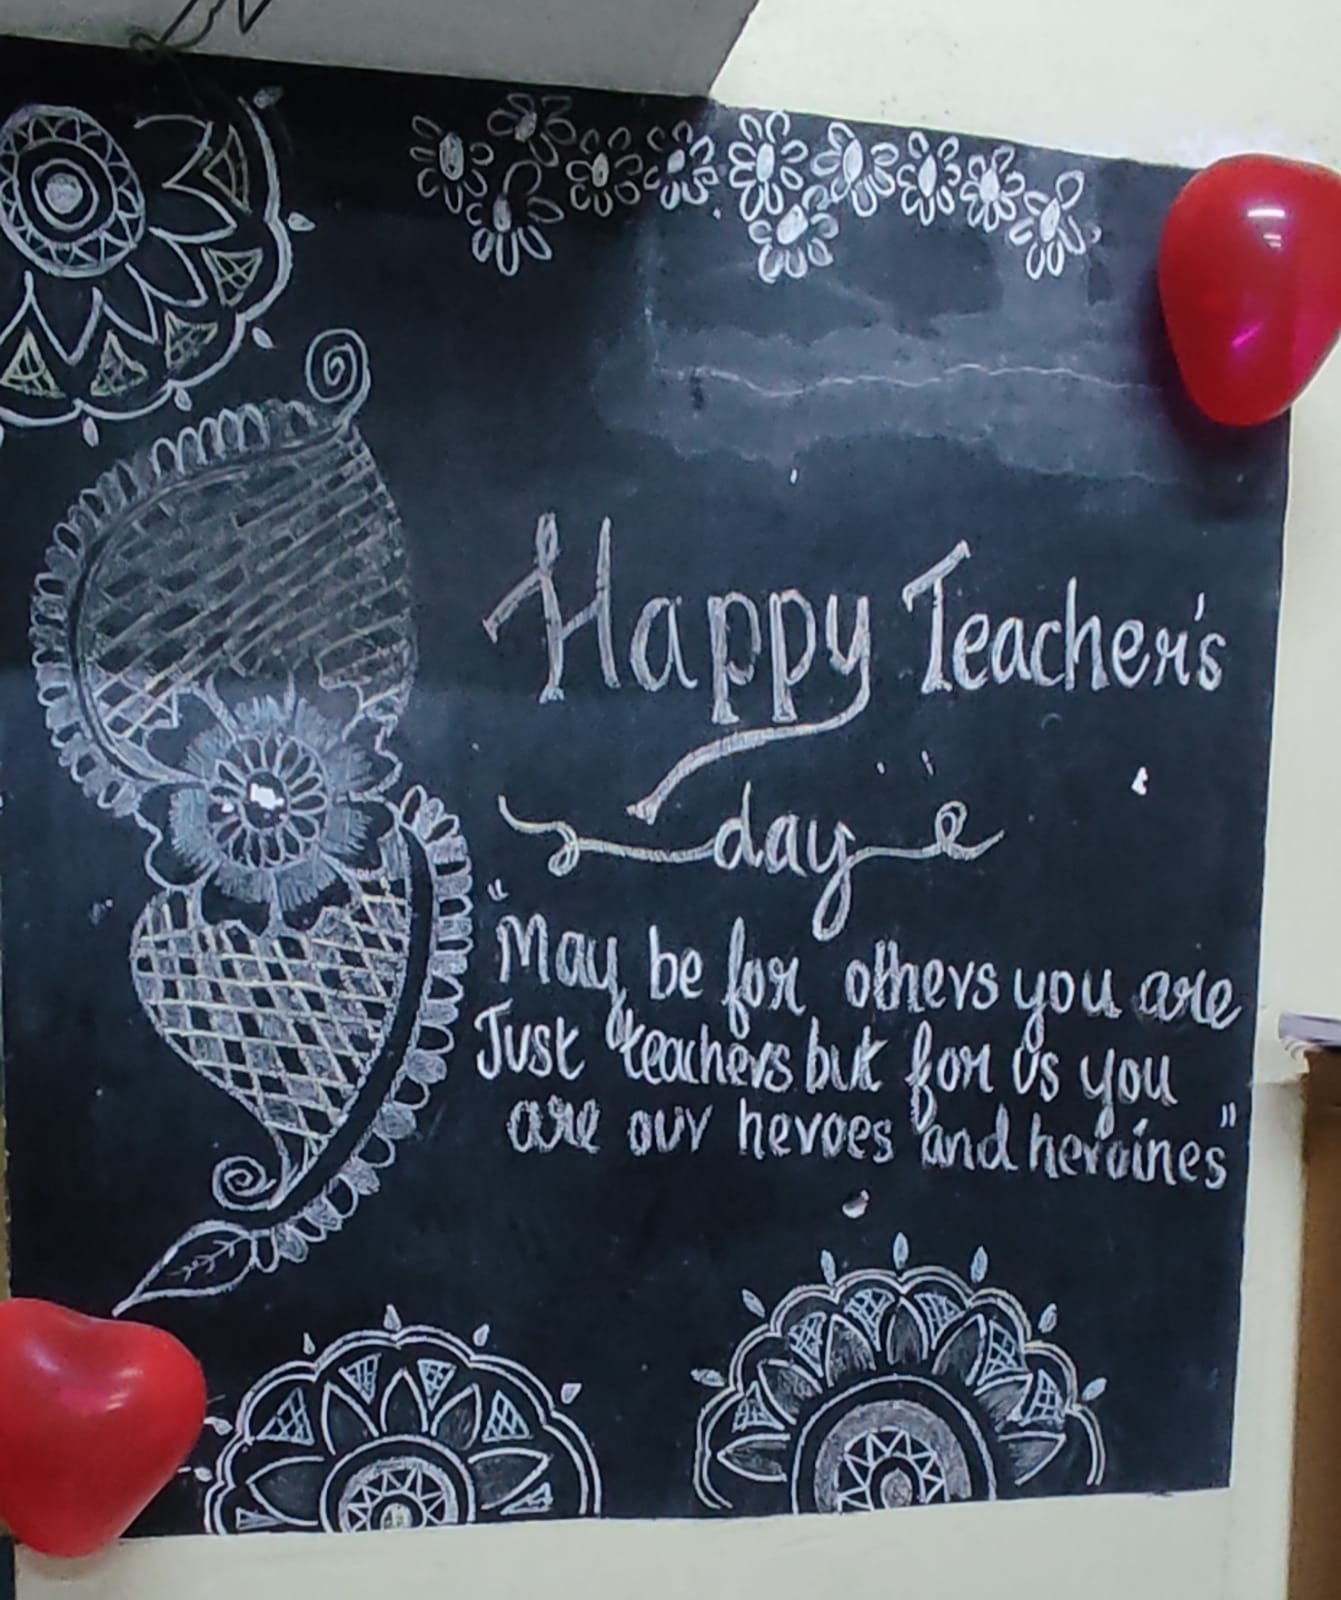 Happy Teacher's
day
"May be for others you are
Just teachers but for us you
are our heroes and heroines"